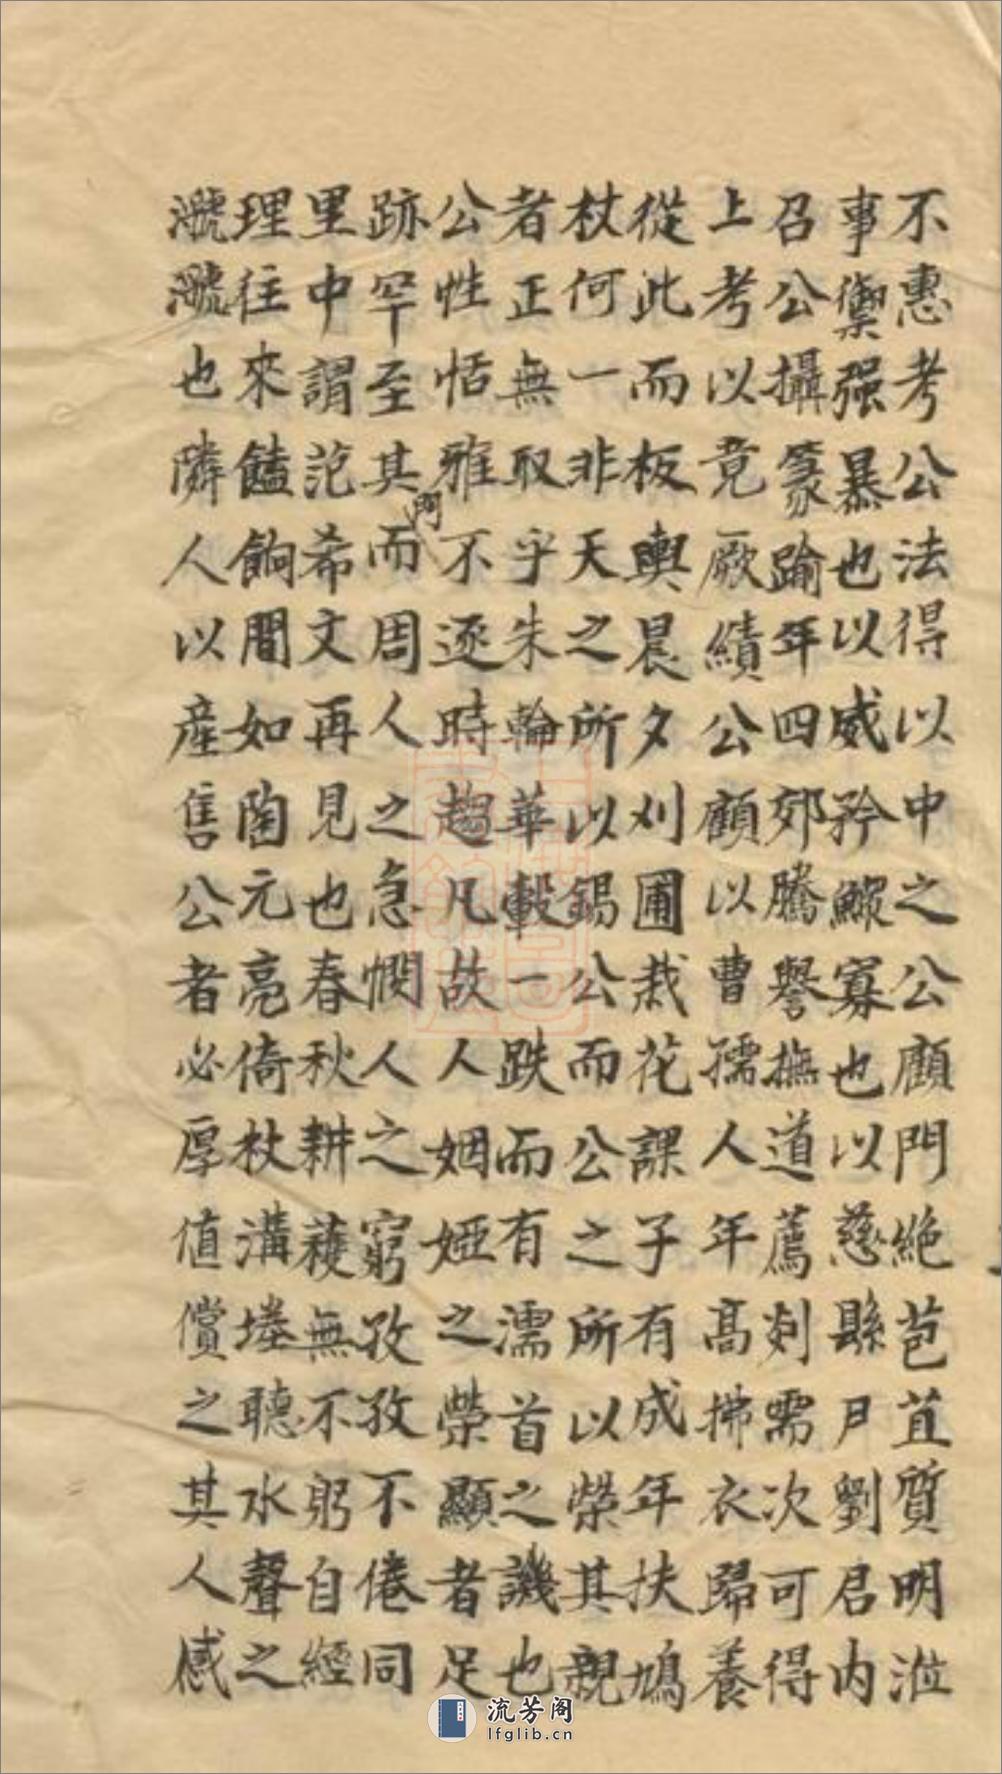 不惠考公法得以中之公顧門絶苞苴質明涖
事禦强暴也以威矜鰥寡也以慈縣尹劉君内
召公攝篆踰年四郊騰譽撫道薦剡需次可得
上考以竟厥績公顧以曹孺人年髙拂衣歸養
從此而板輿晨夕刈圃栽花課子有成年扶鳩
杖何一非天之所以錫公而公之所以榮其親
者正無取乎朱輪華轂一跌而有濡首之譏也
公性恬雅不逐時趨凡故人姻婭之榮顯者足
跡罕至其門而周人之急憫人之窮孜孜不倦同
里中謂范希文再見也春秋耕穫無不躬自經
理往來饁餉間如陶元亮倚杖溝塍聽水聲之
㶁㶁也隣人以産售公者必厚值償之其人感
流芳阁
lfglib.cn